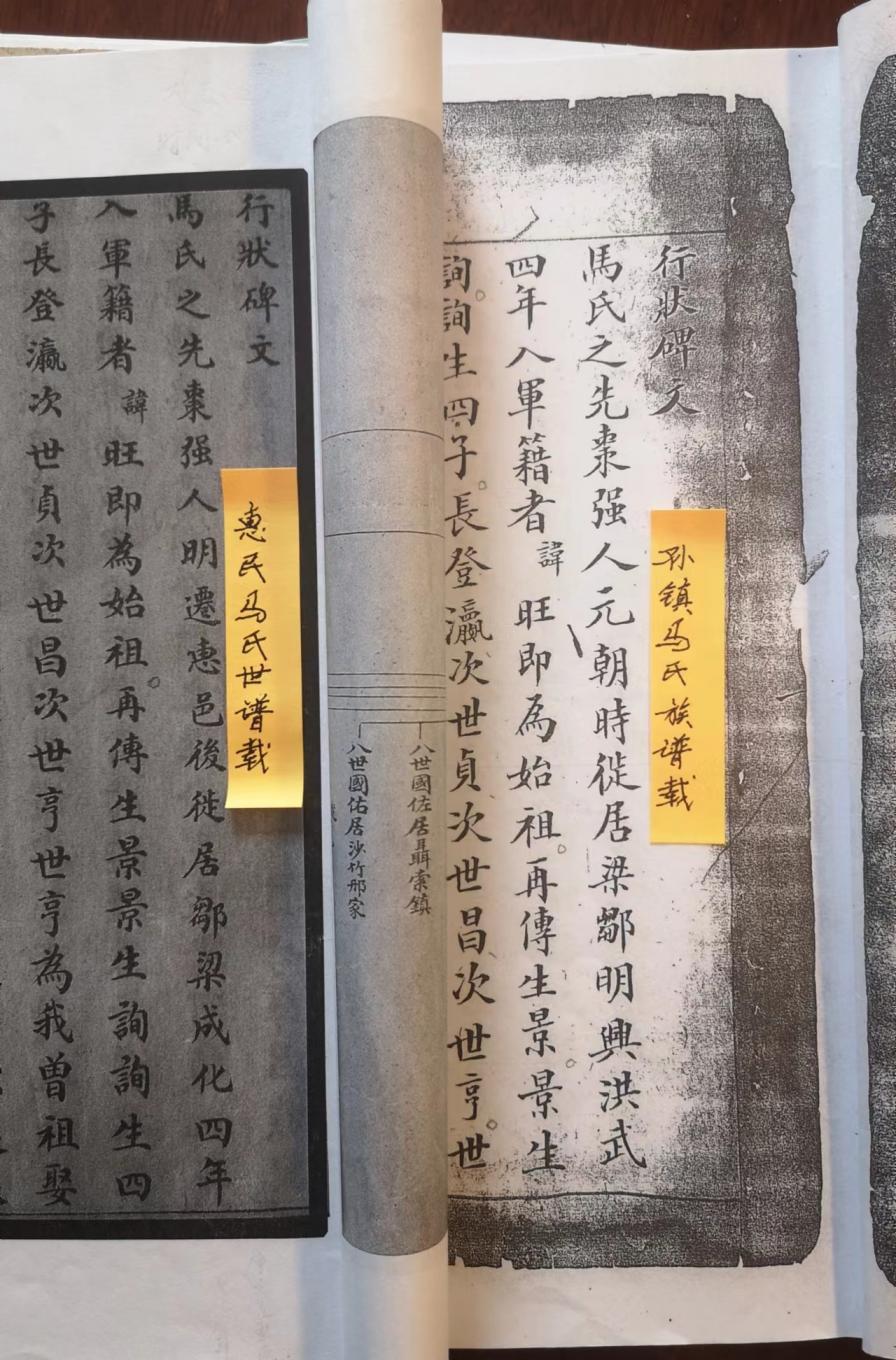 行狀碑文
馬氏之先棗强人元朝時徙居梁鄒明興洪武
四年入軍籍者諱旺即為始祖再傳生景景生
詢詢生四子長登瀛次世貞次世昌次世亨世
孙镇马氏族谱载
八世國佐居聶索鎮
八世國佑居沙竹邢家
行狀碑文
馬氏之先棗强人明遷惠邑後徙居鄒梁成化四年
入軍籍者諱旺即為始祖再傳生景景生詢詢生四
子長登瀛次世貞次世昌次世亨世亨為我曾祖娶
惠民马氏世谱载